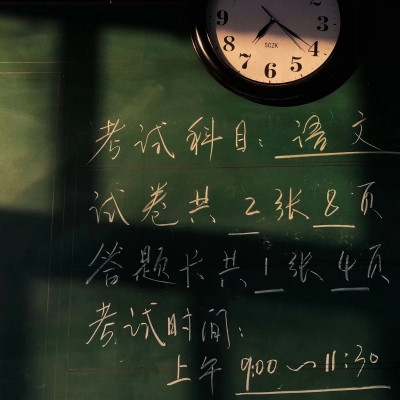 9 8 7 6 5 4 3
SCZK
考试科目: 语文
试卷共 2 张 8 页
答题卡共 1 张 4 页
考试时间:
上午 9:00 ~ 11:30